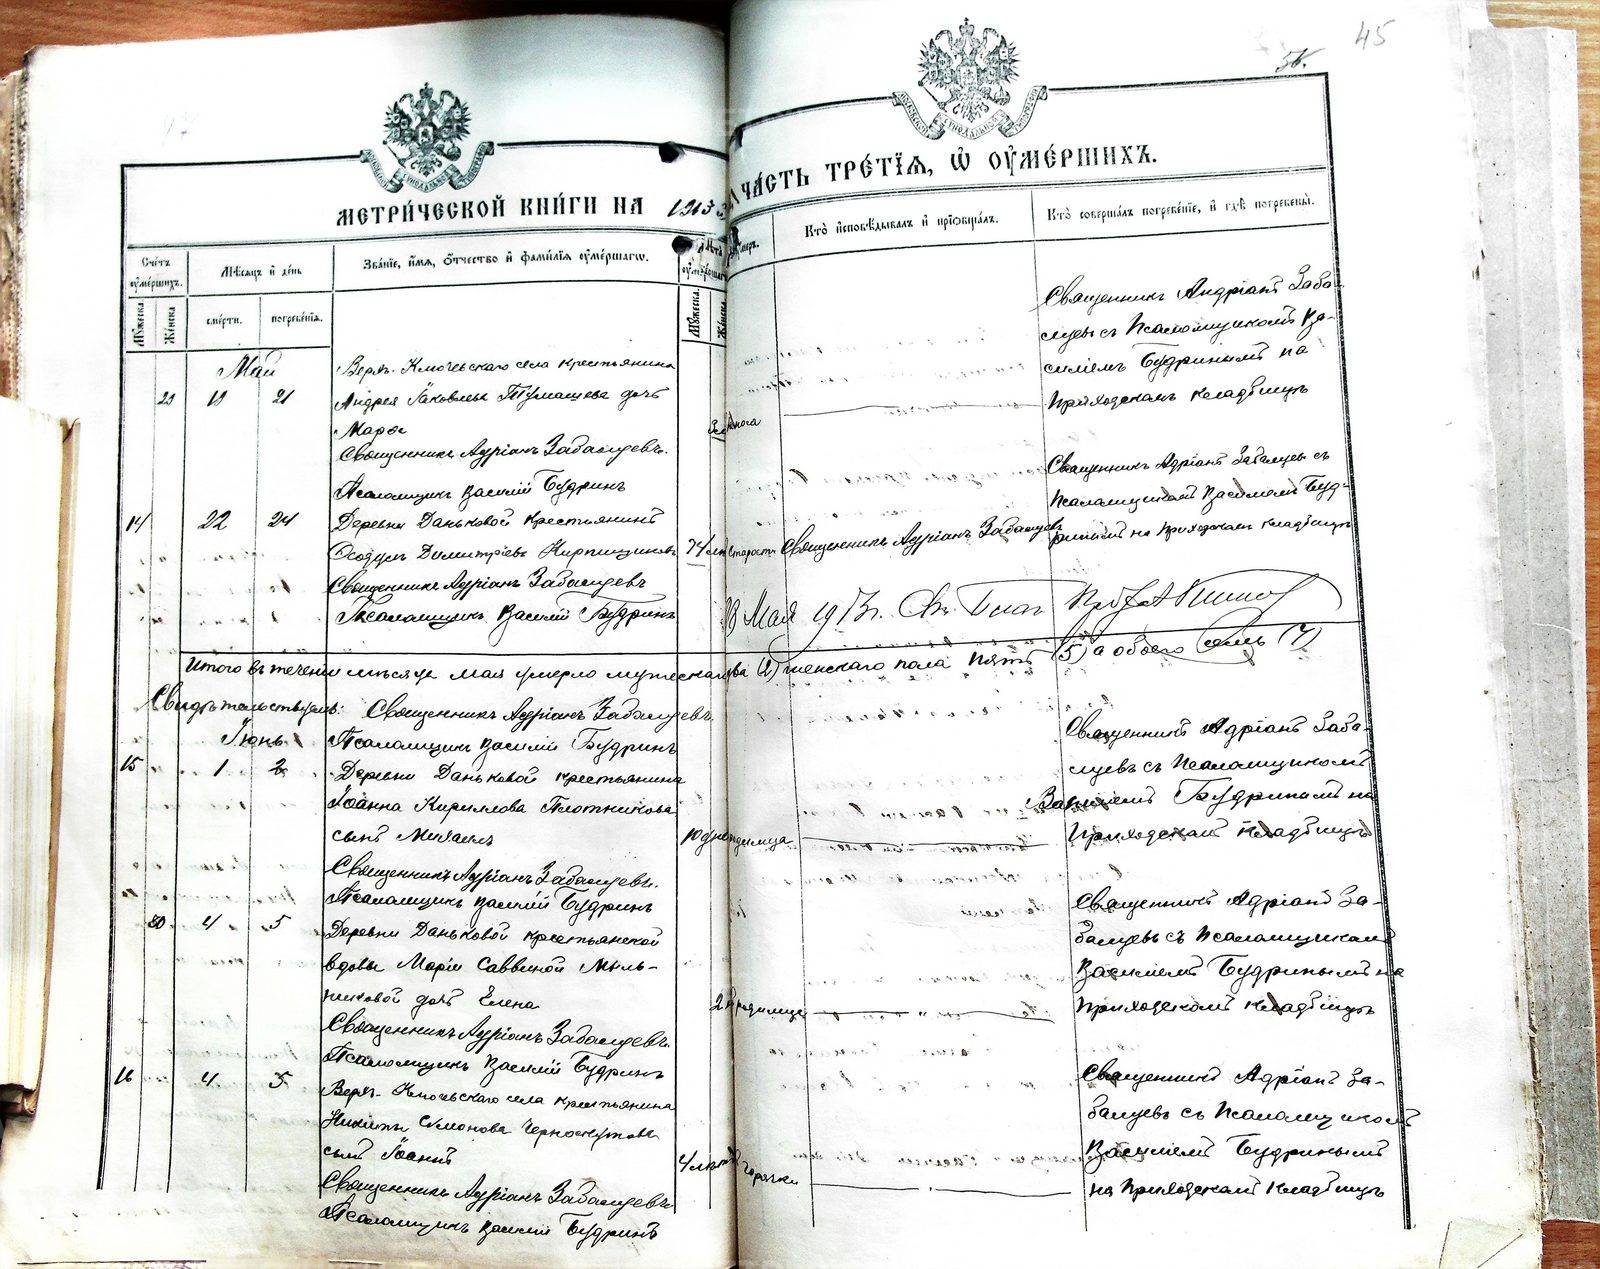 45
56.
МЕТРИ́ЧЕСКОЙ КНИ́ГИ НА 1913
ЧА́СТЬ ТРЕ́ТЇѦ, Ѽ ОУ҆МЕ́РШИХЪ.
Сче́тъ оу҆ме́ршихъ.
Мѣ́сѧцъ и҆ де́нь
Зва́нїе, и҆́мѧ, ѻ҆́тчество и҆ фамѝлїѧ оу҆ме́ршагѡ.
Кто̀ и҆сповѣ́дывалъ и҆ прїѡбща́лъ.
Кто̀ соверша́лъ погребе́нїе, и҆ гдѣ̀ погребены̀.
Мꙋ́жеска.
Же́нска
сме́рти.
погребе́нїѧ.
Мꙋ́жеска.
Же́нска
Май
29 19 21
Верх. Ключевскаго села крестьянина
Андрея Іаковлева Тумашева дочь
Марѳа
Священникъ Адріанъ Забалуевъ.
Псаломщикъ Василій Будринъ
Священникъ Андріанъ Заба-
луевъ съ Псаломщикомъ Ва-
силіемъ Будринымъ на
Приходскомъ кладбищѣ
14 22 24
Деревни Даньковой крестьянинъ
Ѳеодулъ Димитріевъ Кирпищиковъ
74 лѣтъ
старости
Священникъ Адріанъ Забалуевъ
Священникъ Адріанъ Забалуевъ
Псаломщикъ Василій Будринъ
Священникъ Адріанъ Забалуевъ съ
Псаломщикомъ Василіемъ Буд-
ринымъ на Приходскомъ кладбищѣ
Мая 1913 г.
Итого въ теченіи мѣсяца мая умерло мужескаго два (2) женскаго пола пять (5) а обоего семь (7)
Свидѣтельствуемъ: Священникъ Адріанъ Забалуевъ.
Псаломщикъ Василій Будринъ
Іюнь
15 1 2
Деревни Даньковой крестьянина
Іоанна Кириллова Плотникова
сынъ Михаилъ
10 дней
родимца
Священникъ Адріанъ Забалуевъ.
Псаломщикъ Василій Будринъ
Священникъ Адріанъ Заба-
луевъ съ Псаломщикомъ
Василіемъ Будринымъ на
Приходскомъ кладбищѣ
30 4 5
Деревни Даньковой крестьянской
вдовы Маріи Саввиной Мыль-
никовой дочь Елена
родимца
Священникъ Адріанъ Забалуевъ.
Псаломщикъ Василій Будринъ
Священникъ Адріанъ За-
балуевъ съ Псаломщикомъ
Василіемъ Будринымъ на
Приходскомъ кладбищѣ
16 4 5
Верх. Ключевскаго села крестьянина
Никиты Симонова Черноскутова
сынъ Іоаннъ
горячки
Священникъ Адріанъ Забалуевъ
Псаломщикъ Василій Будринъ
Священникъ Адріанъ За-
балуевъ съ Псаломщикомъ
Василіемъ Будринымъ
на Приходскомъ кладбищѣ